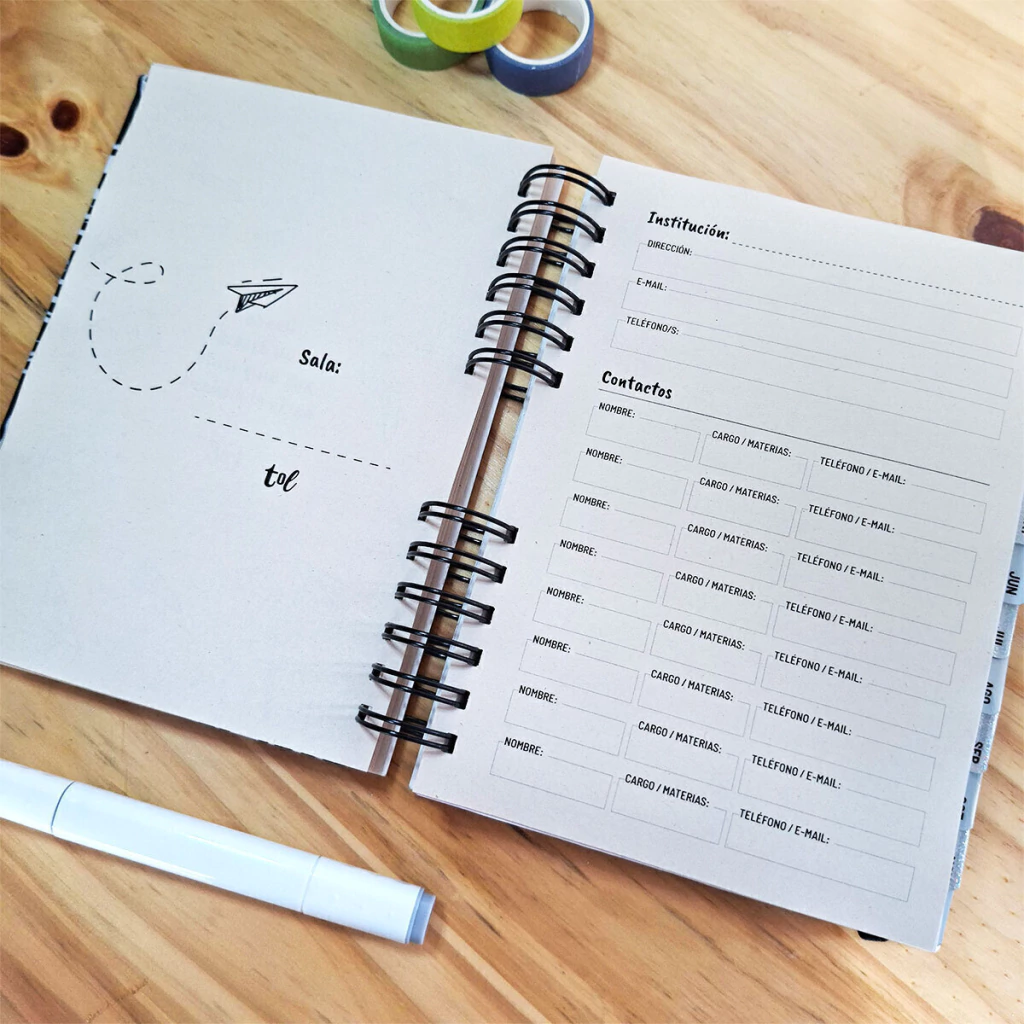 Sala:
tol
Institución:
DIRECCIÓN:
E-MAIL:
TELÉFONO/S:
Contactos
NOMBRE: CARGO / MATERIAS: TELÉFONO / E-MAIL:
NOMBRE: CARGO / MATERIAS: TELÉFONO / E-MAIL:
NOMBRE: CARGO / MATERIAS: TELÉFONO / E-MAIL:
NOMBRE: CARGO / MATERIAS: TELÉFONO / E-MAIL:
NOMBRE: CARGO / MATERIAS: TELÉFONO / E-MAIL:
NOMBRE: CARGO / MATERIAS: TELÉFONO / E-MAIL:
NOMBRE: CARGO / MATERIAS: TELÉFONO / E-MAIL:
NOMBRE: CARGO / MATERIAS: TELÉFONO / E-MAIL:
JUN
AGO
SEP